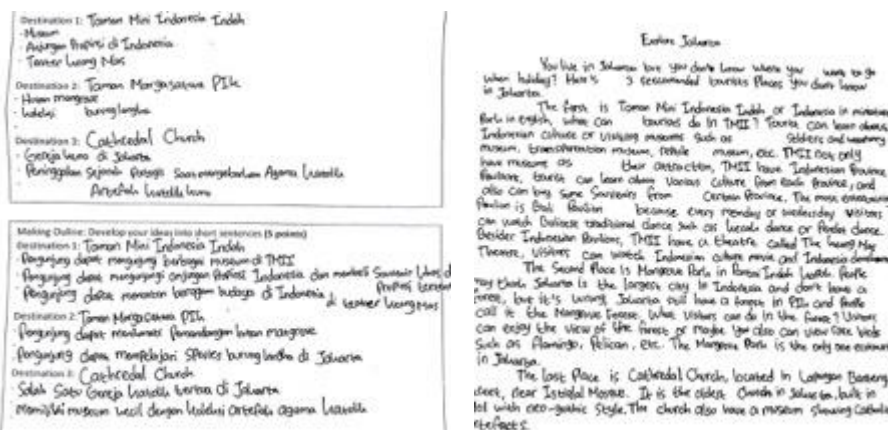 Destination 1: Taman Mini Indonesia Indah
- Museum
- Anjungan Propinsi di Indonesia
- Teater Keong Mas
Destination 2: Taman Margasatwa PIK
- Hutan mangrove
- burung langka
Destination 3: Cathredal Church
- Gereja kuno di Jakarta
- Peninggalan Sejarah Portugis Saat menyebarkan Agama Katolik
Artefak Katolik kuno
Making Outline: Develop your ideas into short sentences (5 points)
Destination 1: Taman Mini Indonesia Indah
- Pengunjung dapat mengunjungi berbagai museum di TMII
- Pengunjung dapat mengunjungi anjungan Propinsi Indonesia dan membeli Souvenir khas
- Pengunjung dapat menonton beragam budaya di Indonesia di teater keong Mas
Destination 2: Taman Margasatwa PIK
- Pengunjung dapat menikmati Pemandangan hutan mangrove
- Pengunjung dapat mempelajari SPesies burung langka di Jakarta
Destination 3: Cathredal Church
- Salah Satu Gereja katolik tertua di Jakarta
- Memiliki museum kecil dengan koleksi artefak agama katolik
Explore Jakarta
You live in Jakarta but you don't know where you want to go
when holiday? Here's 3 recommended tourists Places you don't know
in Jakarta.
The first is Taman Mini Indonesia Indah or Indonesia in miniature
Park in english, what can tourists do in TMII? Tourist can learn about
Indonesian culture or visiting museums Such as Soldiers and
museum, transportation museum, reptile museum, etc. TMII not only
have museums as their attraction, TMII have Indonesian Province
Pavilions, tourist can learn about various culture from each Province, and
also can buy some Souvenirs from Certain Province. The most
Pavilion is Bali Pavilion because every monday or wednesday visitors
can watch Balinese traditional dance such as kecak dance or Pendet dance.
Besides Indonesian Pavilions, TMII have a theatre called The keong Mas
Theatre, Visitors can watch Indonesian culture movie and Indonesia
The Second Place is Mangrove Park in Pantai Indah kapuk. People
may think Jakarta is the largest city in Indonesia and don't have a
forest, but it's wrong, Jakarta still have a forest in PIK and People
call it the Mangrove Forest. What visitors can do in the forest? Visitors
can enjoy the view of the forest or maybe you also can view rare birds
Such as Flamingo, Pelican, etc. The Mangrove Park is the only one
in Jakarta.
The last Place is Cathredal Church, located in Lapangan Banteng
street, near Istiqlal Mosque. It is the oldest Church in Jakarta, built in
with neo-gothic Style. The church also have a museum showing Catholic
artefacts.